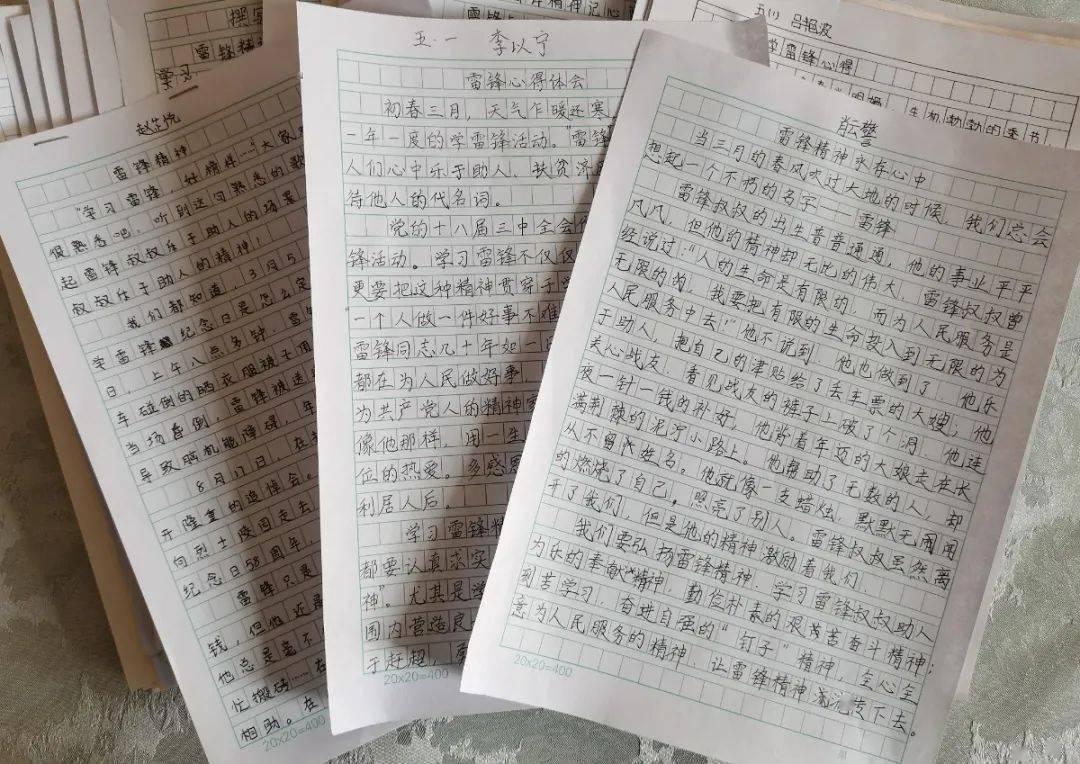 撰写
雷锋精
学习
精神记心
五(1) 吕艳波
学雷锋心得
生机勃勃的季节
赵芷悦
雷锋精神
"学习雷锋,好榜样……"大家
很熟悉吧,听到这句熟悉的歌
起雷锋叔叔乐于助人的场景
叔叔乐于助人的精神!
我们都知道,3月5
学雷锋纪念日是怎么定
日,上午八点多钟,雷
车碰倒的晒衣服被子
当场昏倒,雷锋被送
导致脑机能障碍,年
8月17日,在
开隆重的追悼会。
向烈士陵园走去,
纪念日58周年,
雷锋只是
钱,但他还是
他总是毫不
忙搬砖……在
相助。在
20×20=400
五·一 李以宁
雷锋心得体会
初春三月,天气乍暖还寒,
一年一度的学雷锋活动。"雷锋
人们心中乐于助人、扶贫济
待他人的代名词。
党的十八届三中全会
锋活动。学习雷锋不仅仅
更要把这种精神贯穿于
"一个人做一件好事不难
雷锋同志几十年如一日
都在为人民做好事
为共产党人的精神
像他那样,用一生
位的热爱。多感恩
利居人后。
学习雷锋精
都要认真求实
神"。尤其是学
围内营造良
于赶超,
20×20=400
警
雷锋精神永存心中
当三月的春风吹过大地的时候,我们总会
想起一个不朽的名字——雷锋
雷锋叔叔的出生普普通通,他的事业平平
凡凡,但他的精神却无比的伟大,雷锋叔叔曾
经说过:"人的生命是有限的,而为人民服务是
无限的的,我要把有限的生命投入到无限的为
人民服务中去!"他不说到,他也做到了,他乐
于助人,把自己的津贴给了丢车票的大嫂;他
关心战友,看见战友的裤子上破了个洞,他连
夜一针一钱的补好,他背着年迈的大娘走在长
满荆棘的泥泞小路上。他帮助了无数的人,却
从不留姓名。他就像一支蜡烛,默默无闻闻
的燃烧了自己。照亮了别人。雷锋叔叔虽然离
开了我们,但是他的精神激励着我们,
我们要弘扬雷锋精神,学习雷锋叔叔助人
为乐的奉献精神,勤俭朴素的艰苦奋斗精神;
刻苦学习,奋进自强的"钉子"精神,全心全
意为人民服务的精神,让雷锋精神流传下去。
20×20=400